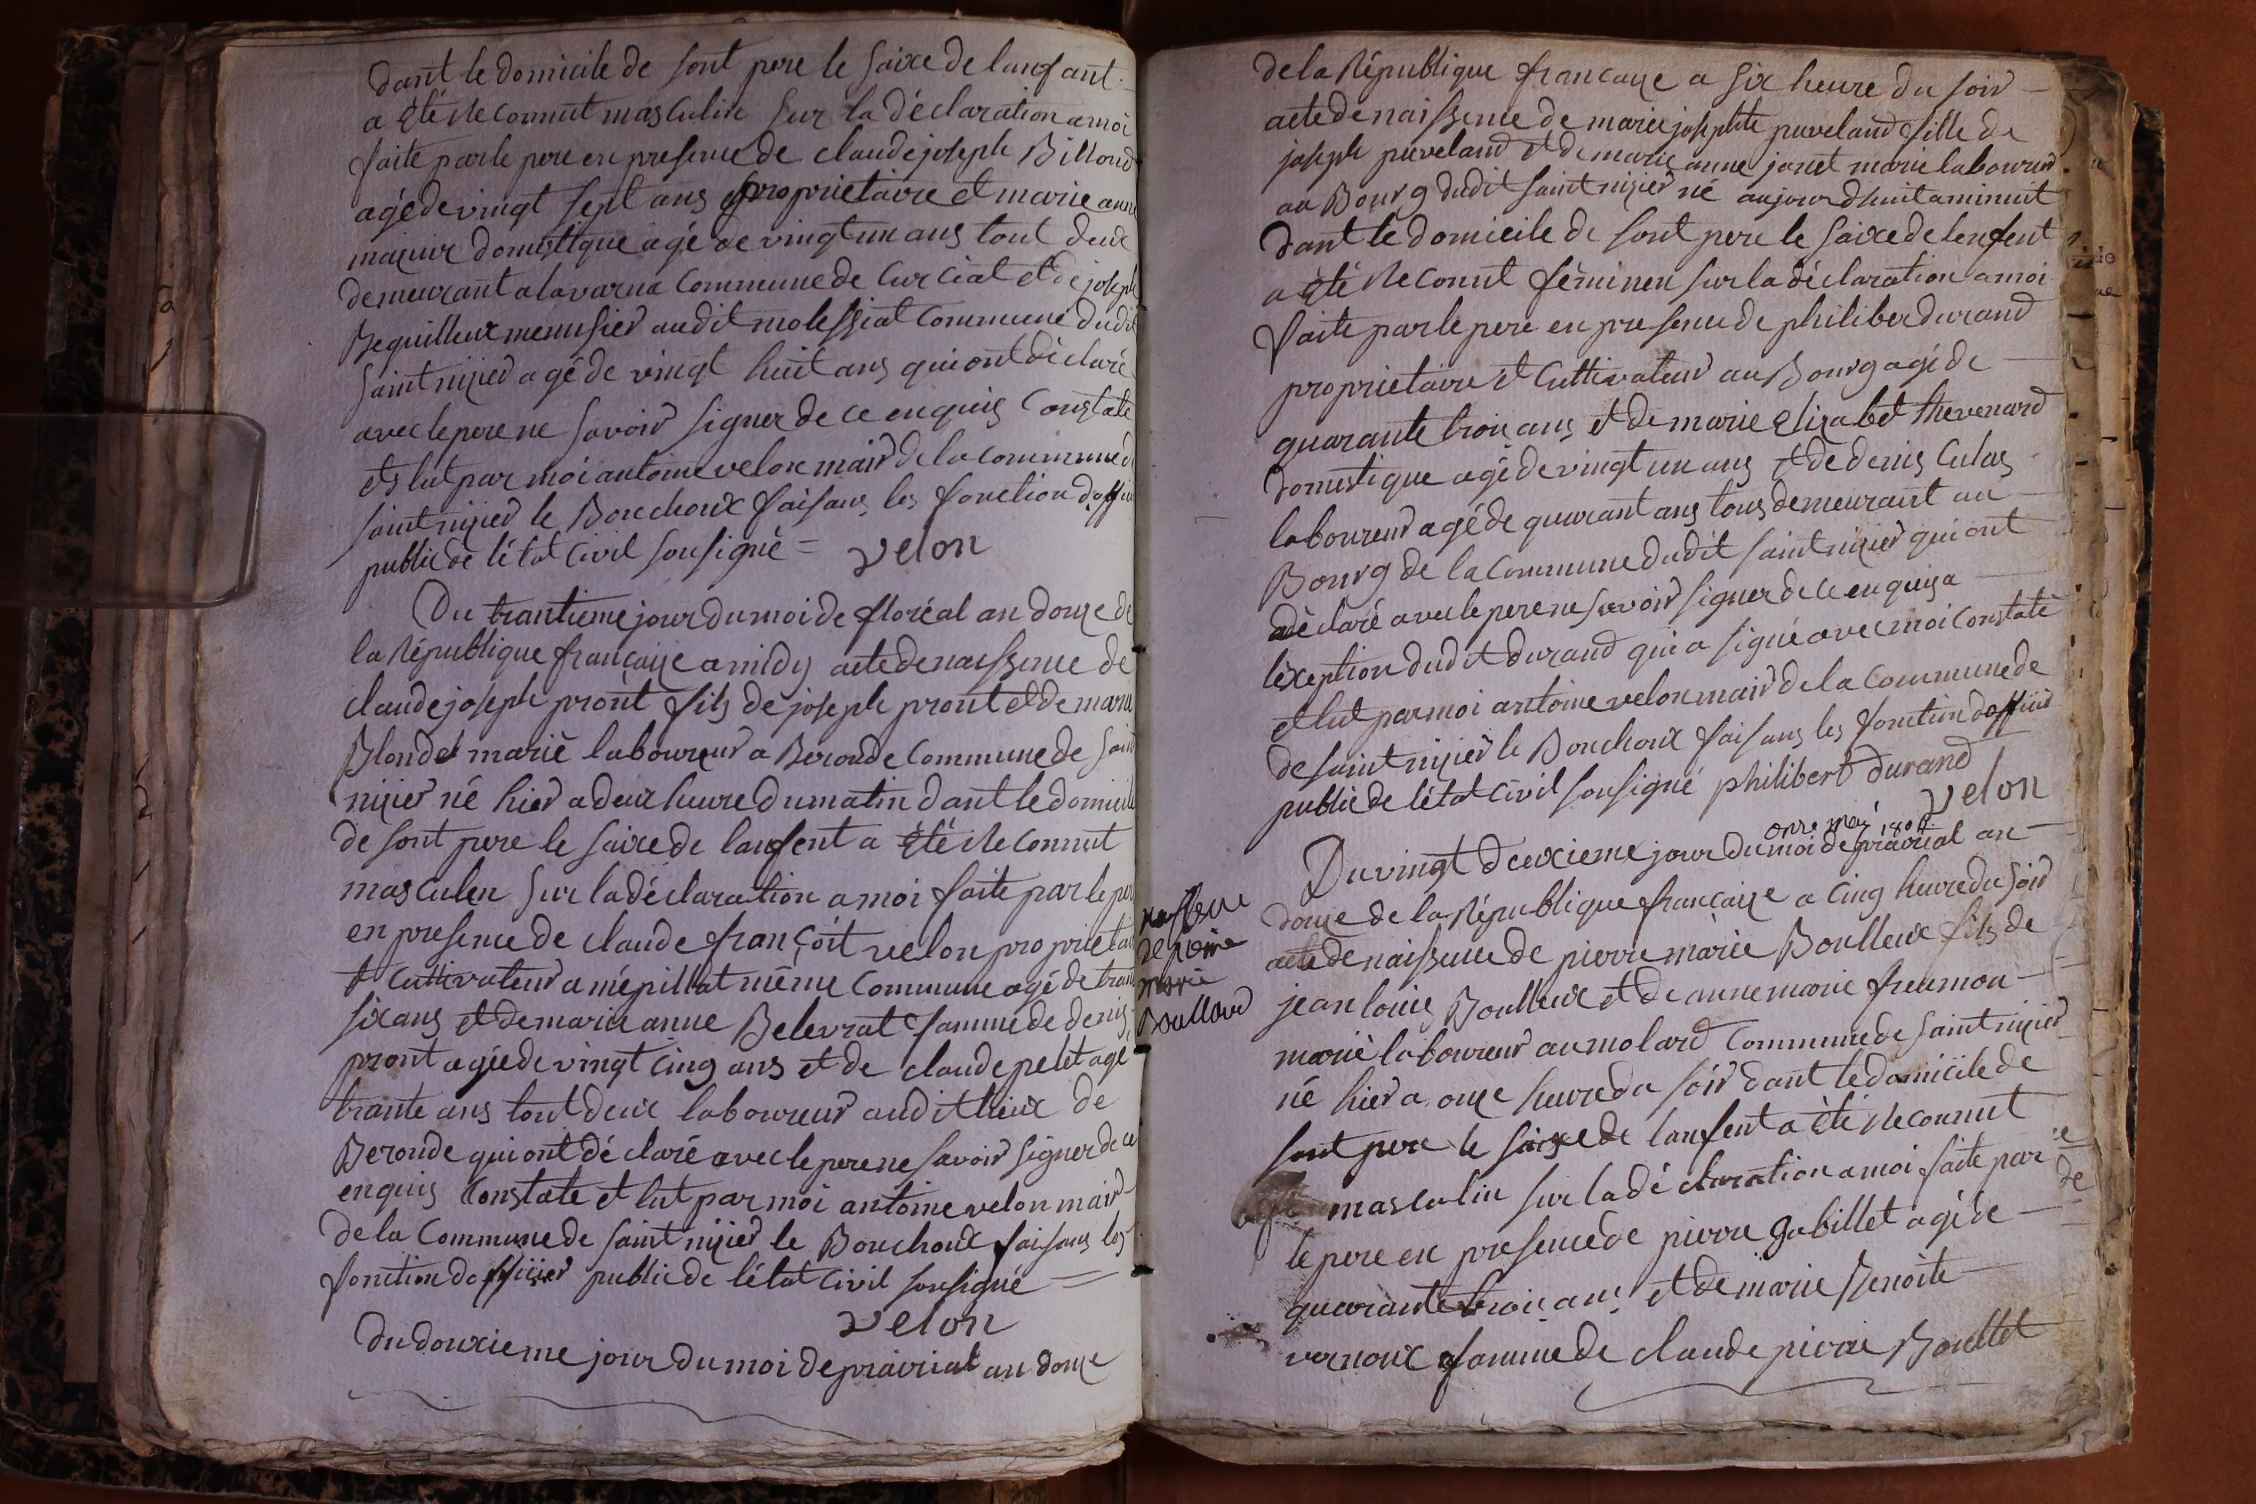 dant le domicile de sont pere le saixe de lanfant
a êté Reconnut masculin sur la déclaration a moi
faite par le pere en presence de claude joseph Billoud
agé de vingt sept ans proprietaire et marie anne
mazuir domestique agé de vingt un ans tout deux
demeurant a lavarna commune de Curciat et de joseph
Bequilleux menusier audit molessiat commune dudit
saint nizier agé de vingt huit ans qui ont déclaré
avec le pere ne savoir signer de ce enquis Constate
et lut par moi antoine velon mair de la commune de
saint nizier le Bouchoux faisans les fonction d'officier
public de létat civil sousigné = velon
Du trantieme jour du moi de floréal an douze de
la République française a midy acte de naissence de
claude joseph pront fils de joseph pront et de marie
Blondet marié laboureur a Beronde commune de saint
nizier né hier a deux heure du matin dant le domicile
de sont pere le saixe de lanfent a êté Reconnut
masculen sur la déclaration a moi faite par le pere
en presence de claude françoit velon proprietaire
et cultivateur a mépillat même commune agé de trante
six ans et de marie anne Belevrat famme de denis
pront agée de vingt cinq ans et de claude pelet agé
trante ans tout deux laboureur audit lieux de
Beronde qui ont déclaré avec le pere ne savoir signer de ce
enquis Constate et lut par moi antoine velon mair
de la Commune de saint nizier le Bouchoux faisans les
fonction dofficier public de létat civil sousigné =
velon
du douxieme jour du moi de prairial an douze
de la République française a six heure du soir
acte de naissence de marie josephte puveland fille de
joseph puveland et de marie anne janet marie laboureur
au Bourg dudit saint nizier né aujourdhuit a minuit
dant le domicile de sont pere le saixe de lenfent
a êté Reconut féminen sur la déclaration a moi
faite par le pere en presence de philiber durand
proprietaire et Cultivateur au Bourg agé de
quarante troix ans et de marie Elizabet thevenard
domestique agé de vingt un ans et de denis Culas
laboureur agé de quarant ans tous demeurant au
Bourg de la commune dudit saint nizier qui ont
déclaré avec le pere ne savoir signer de ce enquis a
léxeption dudit durand qui a signé avec moi constaté
et lut par moi antoine velon mair de la commune de
de saint nizier le Bouchoux faisans les fonction dofficier
public de létat civil sousigné philibert durand
velon
onze mai 1804
Du vingt deuxieme jour du moi de prairial an
douze de la République française a cinq heure du soir
acte de naissence de pierre màrie Boulleux fils de
jean louis Boulleux et de anne marie freumon
marié laboureur au molard Commune de saint nizier
né hier a onze heure du soir dant le domicile de
sont pere le saixe de lanfent a êté Reconnut
masculin sur la déclaration a moi faite par
le pere en presence de pierre gabillet agé de
quarante troix ans et de marie Benoite
vernoux famme de claude pierre Boullet
naissence
de pierre
marie
Boulloud